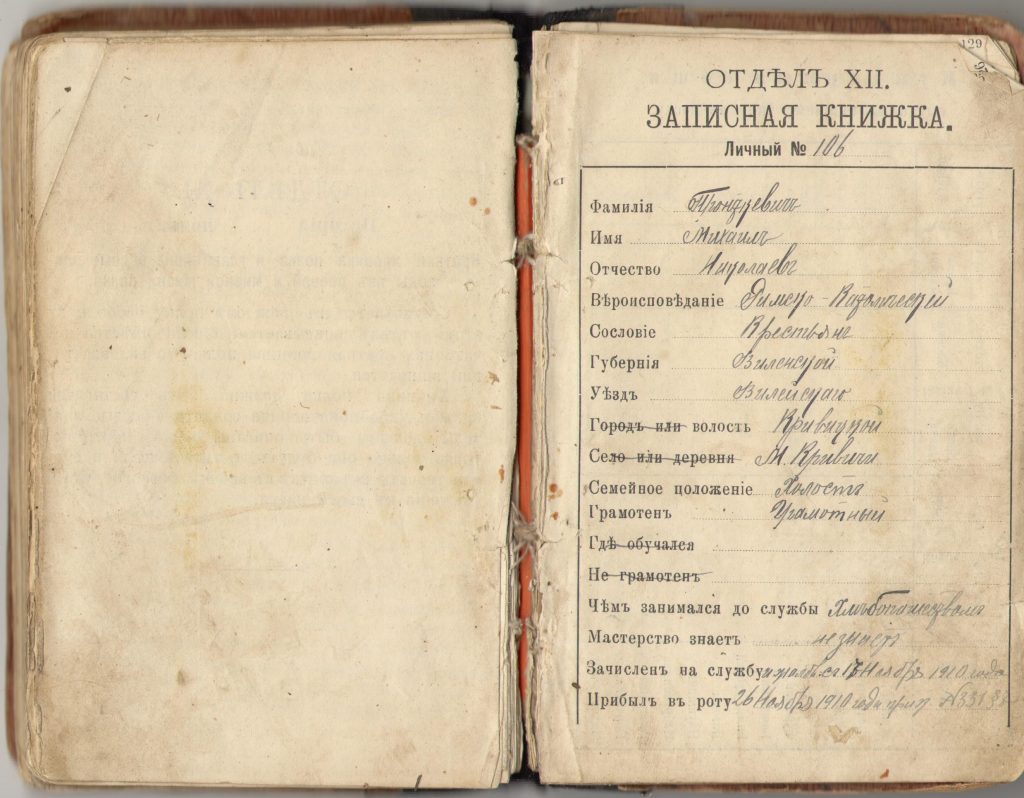 129
ОТДѢЛЪ XII.
ЗАПИСНАЯ КНИЖКА.
Личный № 106
Фамилія
Имя Михаилъ
Отчество Николаевъ
Вѣроисповѣданіе Римско-Католическій
Сословіе Крестьянъ
Губернія Виленской
Уѣздъ Вилейскаго
Городъ или волость Кривицкой
Село или деревня М. Кривичи
Семейное положеніе Холостъ
Грамотенъ Грамотный
Гдѣ обучался
Не грамотенъ
Чѣмъ занимался до службы Хлѣбопашествомъ
Мастерство знаетъ не знаетъ
Зачисленъ на службу Ноября 1910 года
Прибылъ въ роту 26 Ноября 1910 года